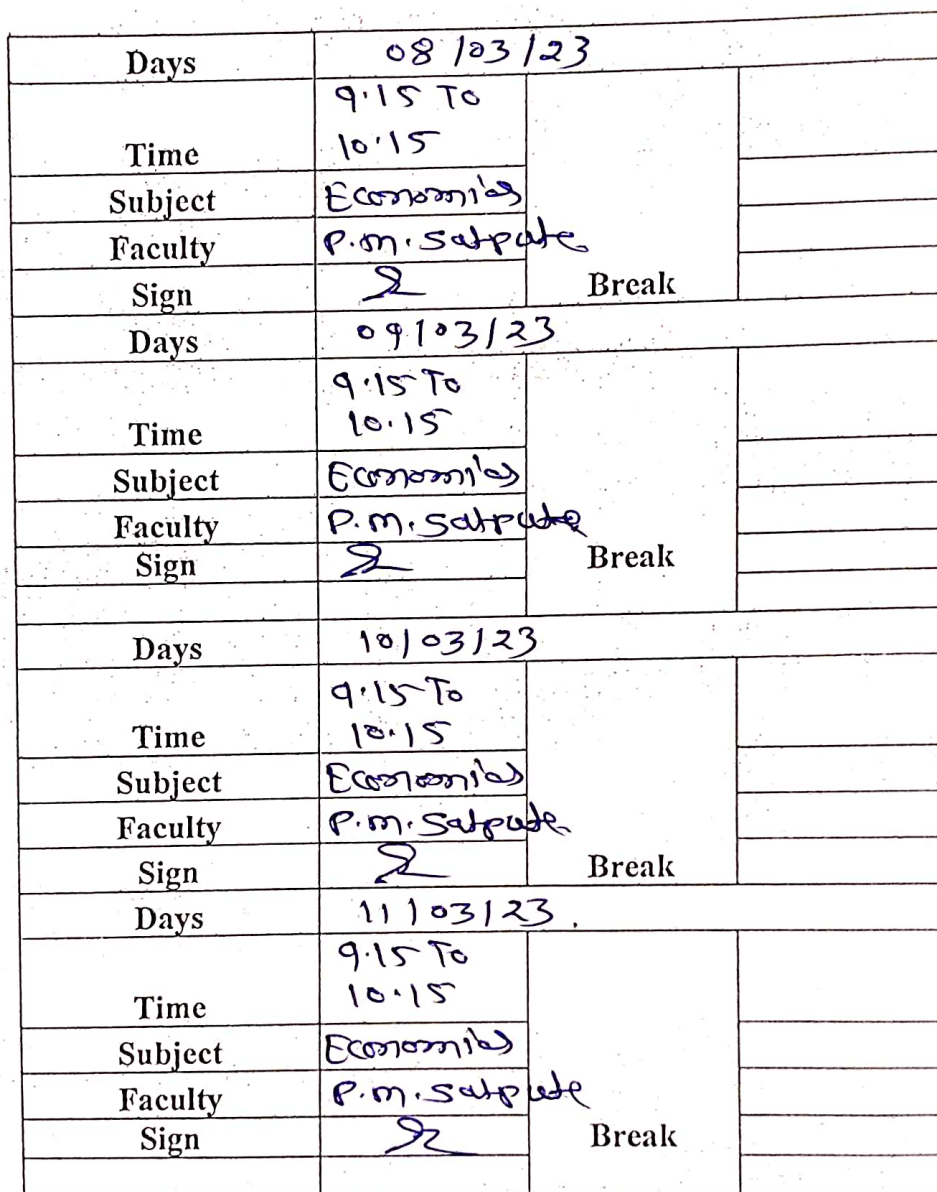 Days 08/03/23
9.15 To
Time 10.15
Subject Economics
Faculty P.M. Satpute
Sign Break
Days 09/03/23
9.15 To
Time 10.15
Subject Economics
Faculty P.M. Satpute
Sign Break
Days 10/03/23
9.15 To
Time 10.15
Subject Economics
Faculty P.M. Satpute
Sign Break
Days 11/03/23.
9.15 To
Time 10.15
Subject Economics
Faculty P.M. Satpute
Sign Break